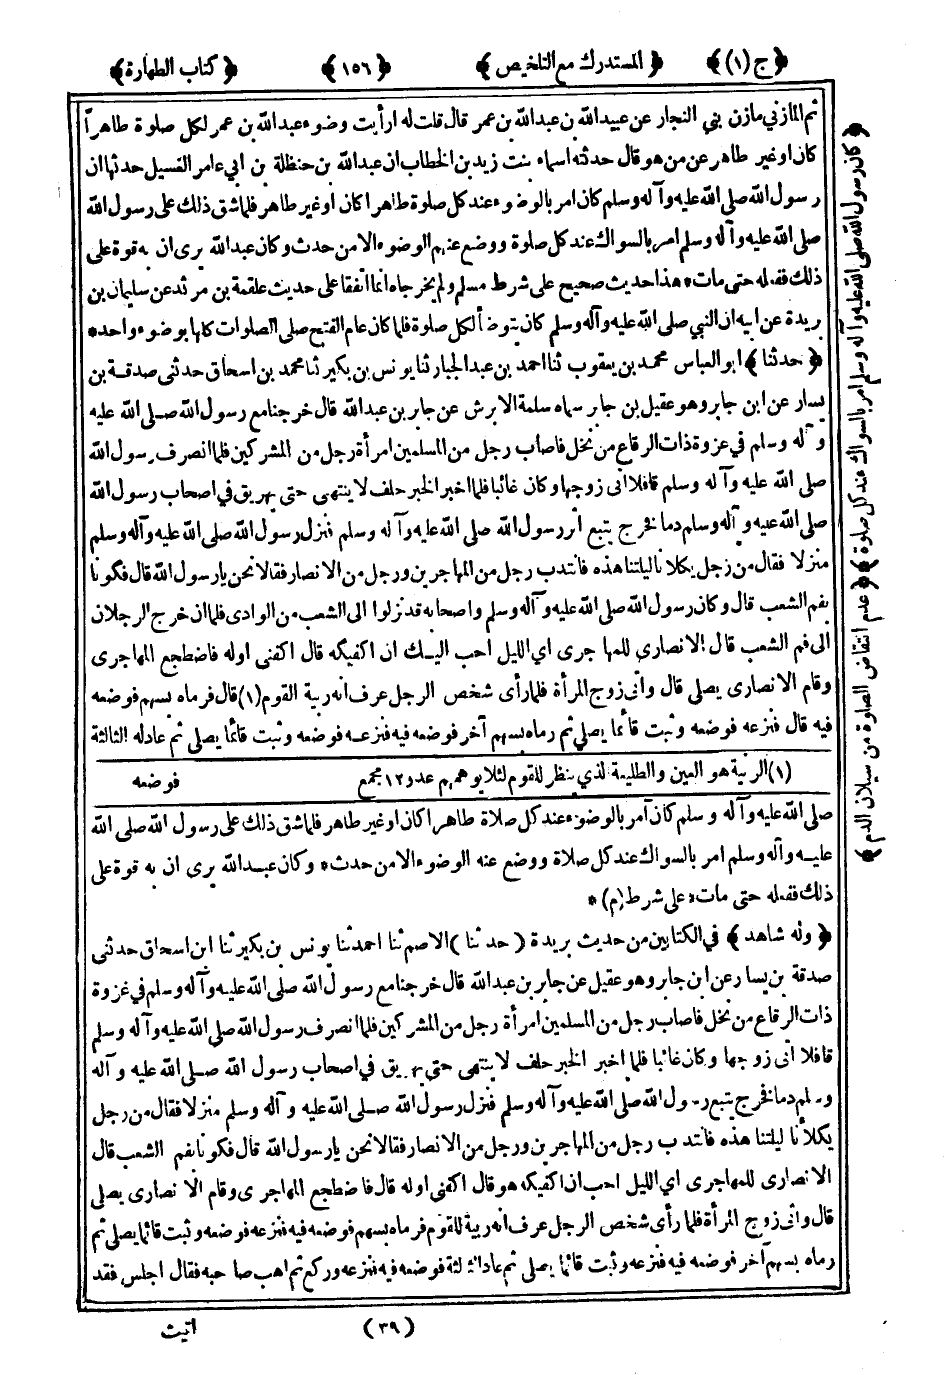 ﴿ ج (١) ﴾ ﴿ المستدرك مع التلخيص ﴾ ﴿ ١٥٦ ﴾ ﴿ كتاب الطهارة ﴾
ثم المازني مازن بني النجار عن عبيد الله بن عبدالله بن عمر قال قلت له ارأيت وضوء عبدالله بن عمر لكل صلوة طاهراً
كان او غير طاهر عن من هو قال حدثته اسماء بنت زيد بن الخطاب ان عبدالله بن حنظلة بن ابي عامر الغسيل حدثها ان
رسول الله صلى الله عليه وآله وسلم كان امر بالوضوء عند كل صلوة طاهرا كان او غير طاهر فلما شق ذلك على رسول الله
صلى الله عليه وآله وسلم امر بالسواك عند كل صلوة ووضع عنهم الوضوء الا من حدث وكان عبدالله يرى ان به قوة على
ذلك ففعله حتى مات * هذا حديث صحيح على شرط مسلم ولم يخرجاه انما اتفقا على حديث علقمة بن مرثد عن سليمان بن
بريدة عن ابيه ان النبي صلى الله عليه وآله وسلم كان يتوضأ لكل صلوة فلما كان عام الفتح صلى الصلوات كلها بوضوء واحد *
﴿ حدثنا ﴾ ابو العباس محمد بن يعقوب ثنا احمد بن عبد الجبار ثنا يونس بن بكير ثنا محمد بن اسحاق حدثنى صدقة بن
يسار عن ابن جابر وهو عقيل بن جابر سماه سلمة الابرش عن جابر بن عبدالله قال خرجنا مع رسول الله صلى الله عليه
وآله وسلم في غزوة ذات الرقاع من نخل فاصاب رجل من المسلمين امرأة رجل من المشركين فلما انصرف رسول الله
صلى الله عليه وآله وسلم قافلا اتى زوجها وكان غائبا فلما اخبر الخبر حلف لا ينتهى حتى يهريق في اصحاب رسول الله
صلى الله عليه وآله وسلم دما فخرج يتبع اثر رسول الله صلى الله عليه وآله وسلم فنزل رسول الله صلى الله عليه وآله وسلم
منزلا فقال من رجل يكلأنا ليلتنا هذه فانتدب رجل من المهاجرين ورجل من الانصار فقالا نحن يا رسول الله قال فكونا
بفم الشعب قال وكان رسول الله صلى الله عليه وآله وسلم واصحابه قد نزلوا الى الشعب من الوادى فلما ان خرج الرجلان
الى فم الشعب قال الانصارى للمهاجرى اي الليل احب اليك ان اكفيكه قال اكفنى اوله فاضطجع المهاجرى
وقام الانصارى يصلى قال واتى زوج المرأة فلما رأى شخص الرجل عرف انه ربية القوم (١) قال فرماه بسهم فوضعه
فيه قال فنزعه فوضعه وثبت قائما يصلى ثم رماه بسهم آخر فوضعه فيه فنزعه فوضعه وثبت قائما يصلى ثم عاد له الثالثة
(١) الربية هو العين والطليعة الذي ينظر للقوم لئلا يدهمهم عدو ١٢ مجمع فوضعه
صلى الله عليه وآله وسلم كان أمر بالوضوء عند كل صلاة طاهرا كان او غير طاهر فلما شق ذلك على رسول الله صلى الله
عليه وآله وسلم امر بالسواك عند كل صلاة ووضع عنه الوضوء الا من حدث * وكان عبدالله يرى ان به قوة على
ذلك ففعله حتى مات * على شرط (م) *
﴿ وله شاهد ﴾ في الكتابين من حديث بريدة ( حدثنا ) الاصم ثنا احمد ثنا يونس بن بكير ثنا ابن اسحاق حدثنى
صدقة بن يسار عن ابن جابر وهو عقيل عن جابر بن عبدالله قال خرجنا مع رسول الله صلى الله عليه وآله وسلم في غزوة
ذات الرقاع من نخل فاصاب رجل من المسلمين امرأة رجل من المشركين فلما انصرف رسول الله صلى الله عليه وآله وسلم
قافلا اتى زوجها وكان غائبا فلما اخبر الخبر حلف لا ينتهى حتى يهريق في اصحاب رسول الله صلى الله عليه وآله
وسلم دما فخرج يتبع رسول الله صلى الله عليه وآله وسلم فنزل رسول الله صلى الله عليه وآله وسلم منزلا فقال من رجل
يكلأنا ليلتنا هذه فانتدب رجل من المهاجرين ورجل من الانصار فقالا نحن يا رسول الله قال فكونا بفم الشعب قال
الانصارى للمهاجرى اي الليل احب ان اكفيكه هو قال اكفنى اوله قال فاضطجع المهاجرى وقام الانصارى يصلى
قال واتى زوج المرأة فلما رأى شخص الرجل عرف انه ربية للقوم فرماه بسهم فوضعه فيه فنزعه فوضعه وثبت قائما يصلى ثم
رماه بسهم آخر فوضعه فيه فنزعه وثبت قائما يصلى ثم عاد الثالثة فوضعه فيه فنزعه وركع ثم اهب صاحبه فقال اجلس فقد
(٣٩) اتيت
﴿ كان رسول الله صلى الله عليه وآله وسلم امر بالسواك عند كل صلوة ﴾ ﴿ عدم انتقاض الصلوة من سيلان الدم ﴾